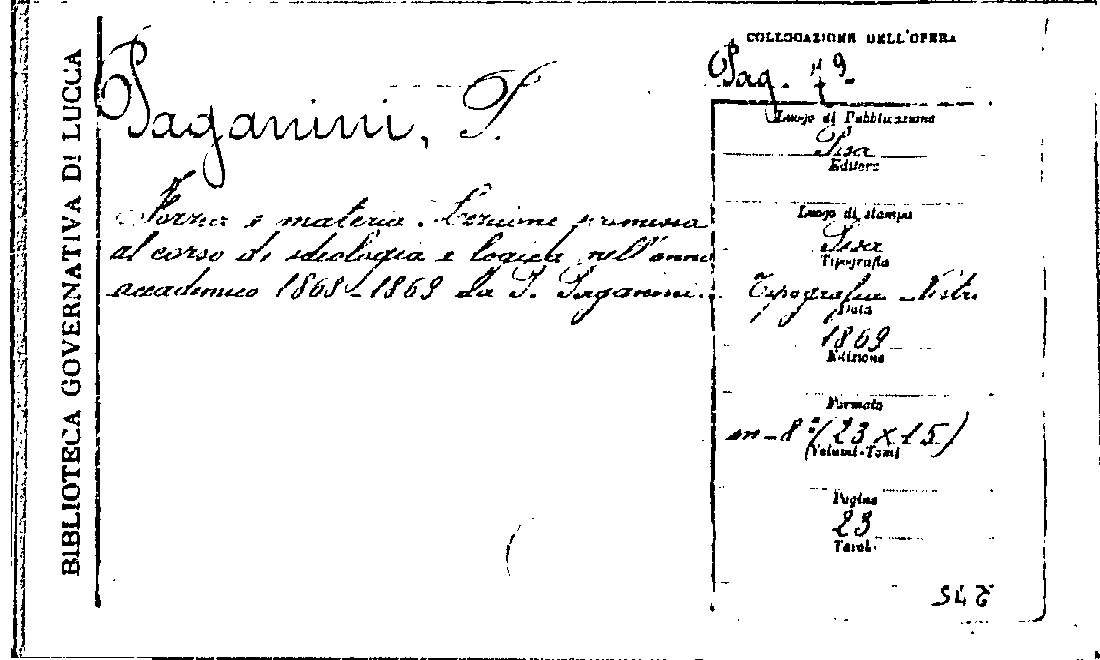 BIBLIOTECA GOVERNATIVA DI LUCCA
Paganini, P.
Forza e materia. Lezione premessa
al corso di ideologia e logica nell'anno
accademico 1868-1869 da P. Paganini.
COLLOCAZIONE DELL'OPERA
Pag.
Luogo di Pubblicazione
Pisa
Editore
Luogo di stampa
Pisa
Tipografia
Tipografia Nistri
Data
1869
Edizione
Formato
in-8º (23 x 15)
Volumi-Tomi
Pagine
23
Tavol.